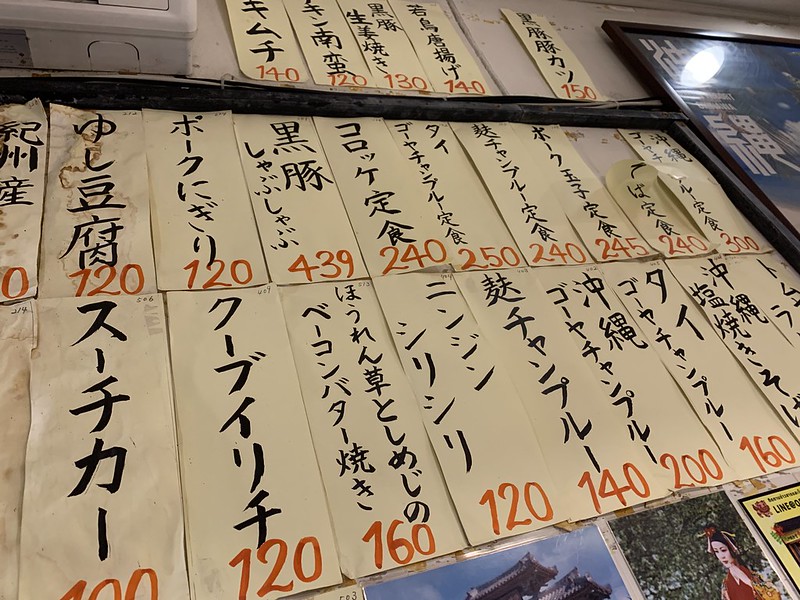 キムチ
140
キン南蛮
120
黒豚
生姜焼き
130
若鳥唐揚げ
140
黒豚豚カツ
150
紀州産
0
ゆし豆腐
120
ポークにぎり
120
黒豚
しゃぶしゃぶ
439
コロッケ定食
240
タイ
ゴーヤチャンプルー定食
250
麩チャンプルー定食
240
ポーク玉子定食
245
ば定食
240
沖縄
ゴーヤチ
ルー定食
300
506
スーチカー
409
クーブイリチ
120
513
ほうれん草としめじの
ベーコンバター焼き
160
ニンジン
シリシリ
120
麩チャンプルー
140
沖縄
ゴーヤチャンプルー
200
タイ
ゴーヤチャンプルー
160
沖縄
塩焼きそば
トム
ラ
503
LINE@
縄